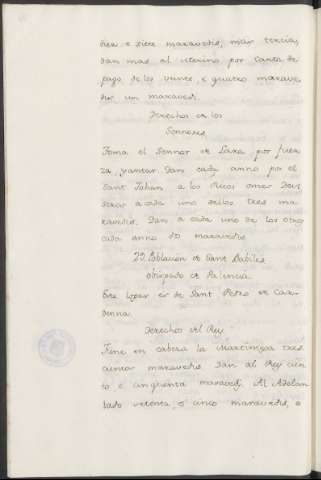 diez e siete maravedis, mas tercia,
dan mas al merino por carta de
pago de los veinte, e quatro marave
dis un maravedi.
Derechos de los
Sennores
Toma el Sennor de Lara por fuer
za, yantar. Dan cada anno por el
Sant Johan a los Ricos omes Devi
seros a cada uno dellos tres ma
ravedis. Dan a cada uno de los otros
cada anno maravedis
29. Poblacion de Sant
obispado de Palencia
Este logar es de Sant Pedro de Car
denna
Derechos del Rey
Tiene en cabeza la Martiniega tres
cientos maravedis. Dan al Rey cien
to e cinquenta maraved. Al Adelan
tado ochenta, e cinco maravedis, e